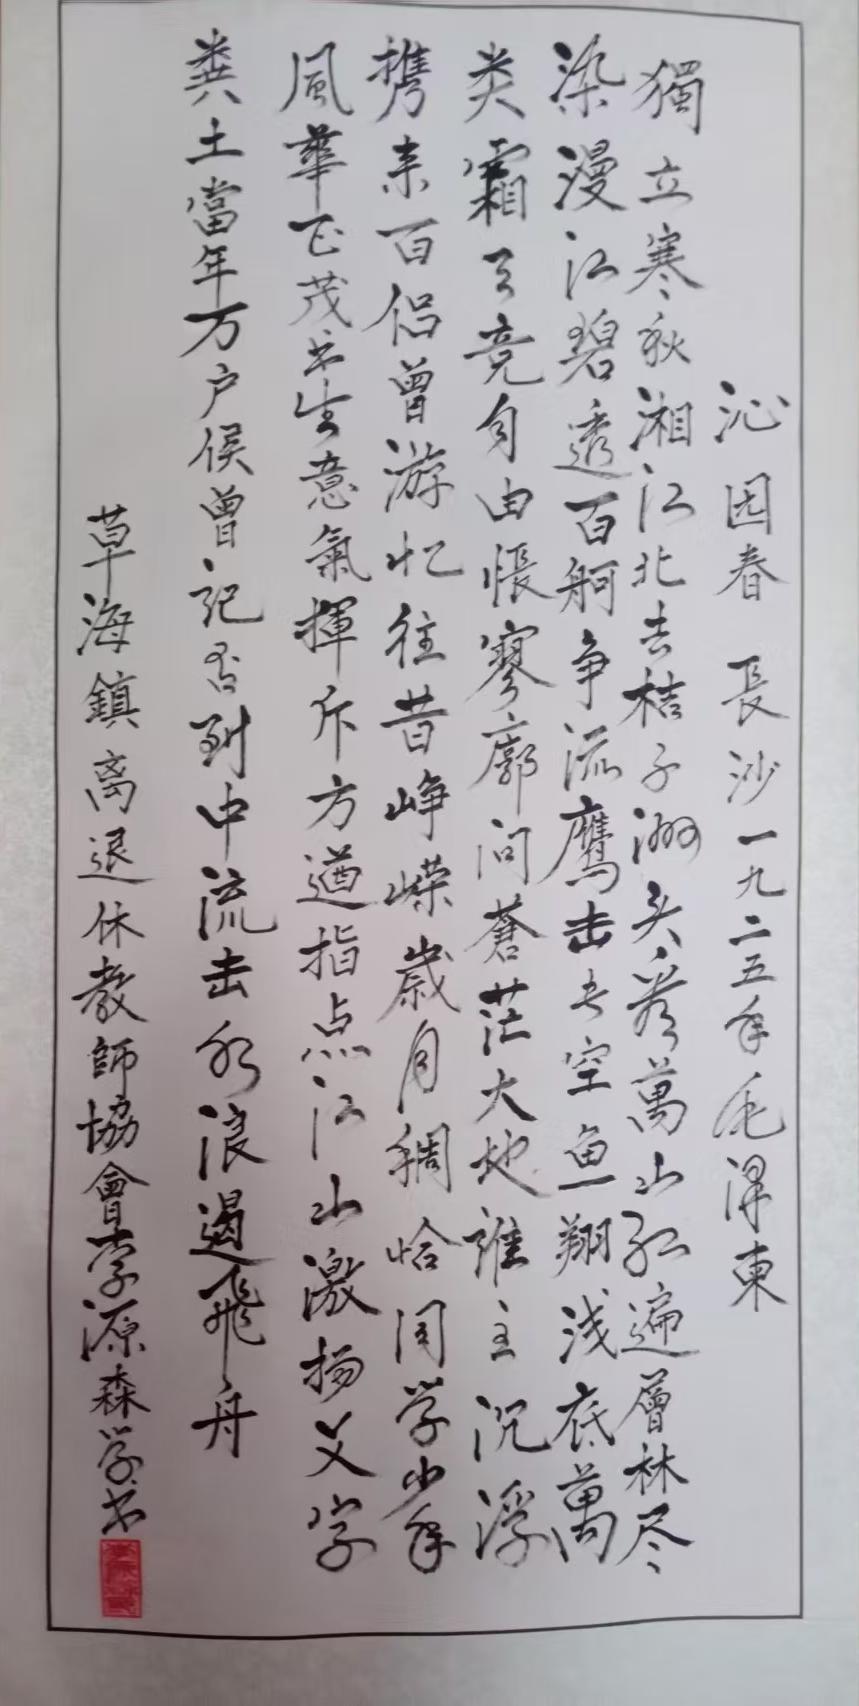 沁园春 長沙一九二五年毛泽東
獨立寒秋湘江北去桔子洲头看萬山红遍層林尽
染漫江碧透百舸争流鷹击长空鱼翔浅底萬
类霜天竞自由悵寥廓问蒼茫大地誰主沉浮
携来百侣曾游忆往昔峥嵘歲月稠恰同学少年
風華正茂书生意氣揮斥方遒指点江山激扬文字
粪土當年万户侯曾记否到中流击水浪遏飛舟
草海鎮离退休教師協會李源森学书